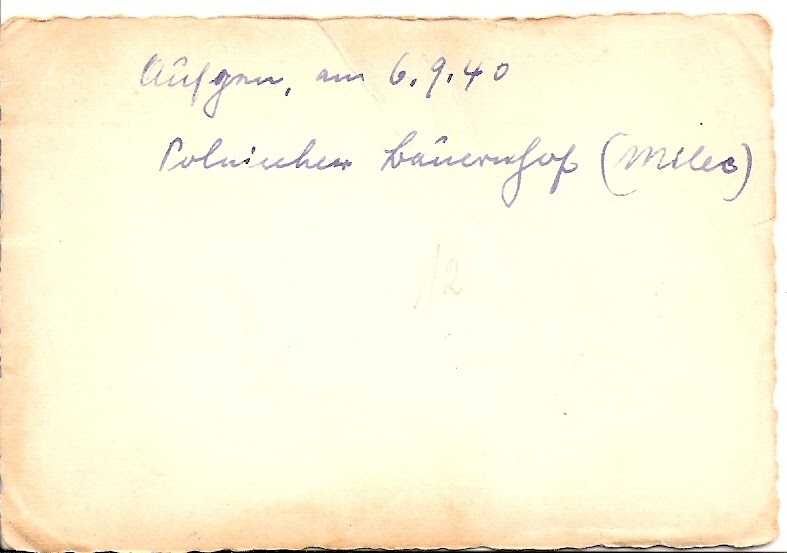 Aufgen. am 6.9.40
Polnischer Bauernhof (Milec)
12